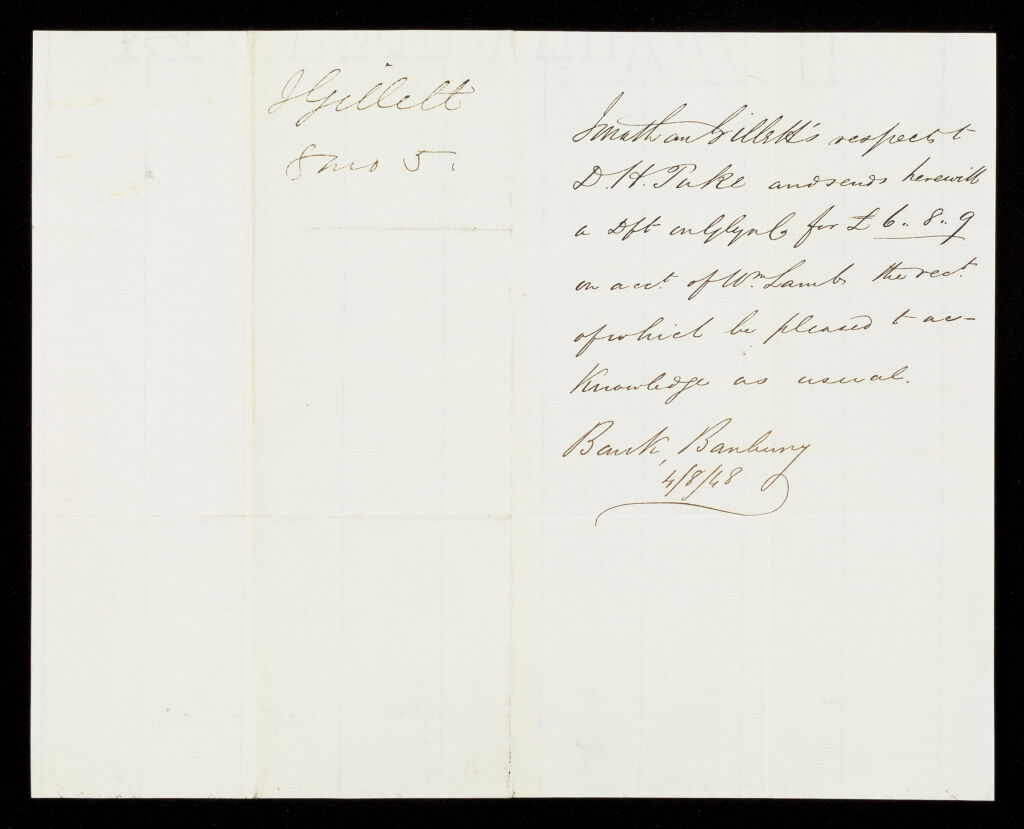 J Gillett
8 mo 5.
Jonathan Gillett's respects to
D. H. Tuke and sends herewith
a Dft on Glyn & Co for £ 6.. 8.. 9
on acct. of Wm. Lamb the rect.
of which be pleased to ac-
knowledge as usual.
Bank, Banbury
4/8/48